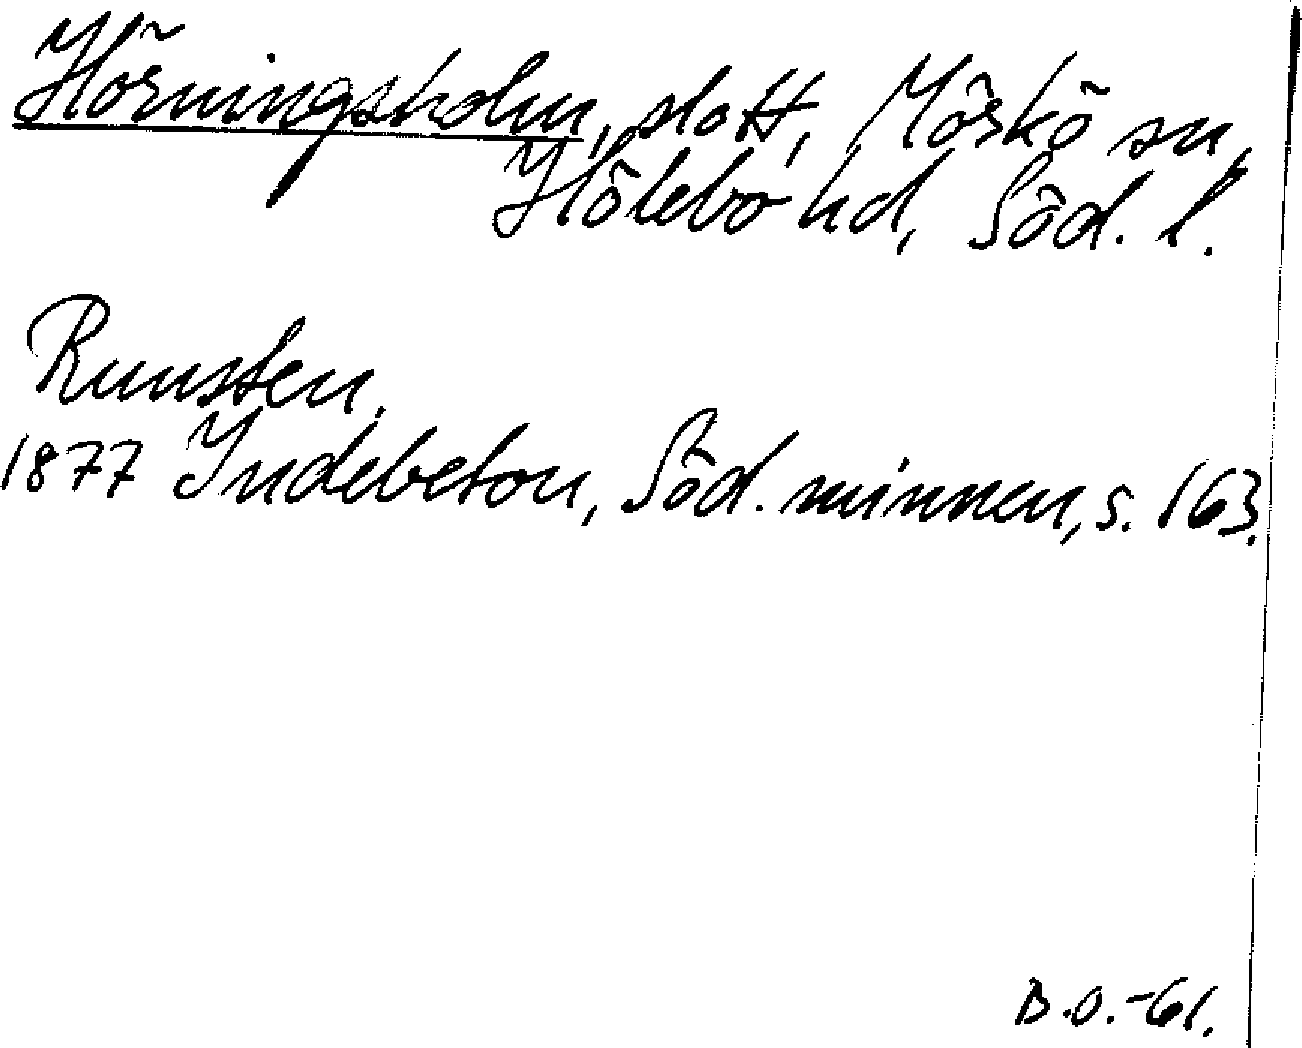 Hörningsholm, slott, Mörkö sn,
Hölebo hd, Söd. l.
Runsten.
1877 Indebetou, Söd. minnen, s. 163.
B.O.-61.